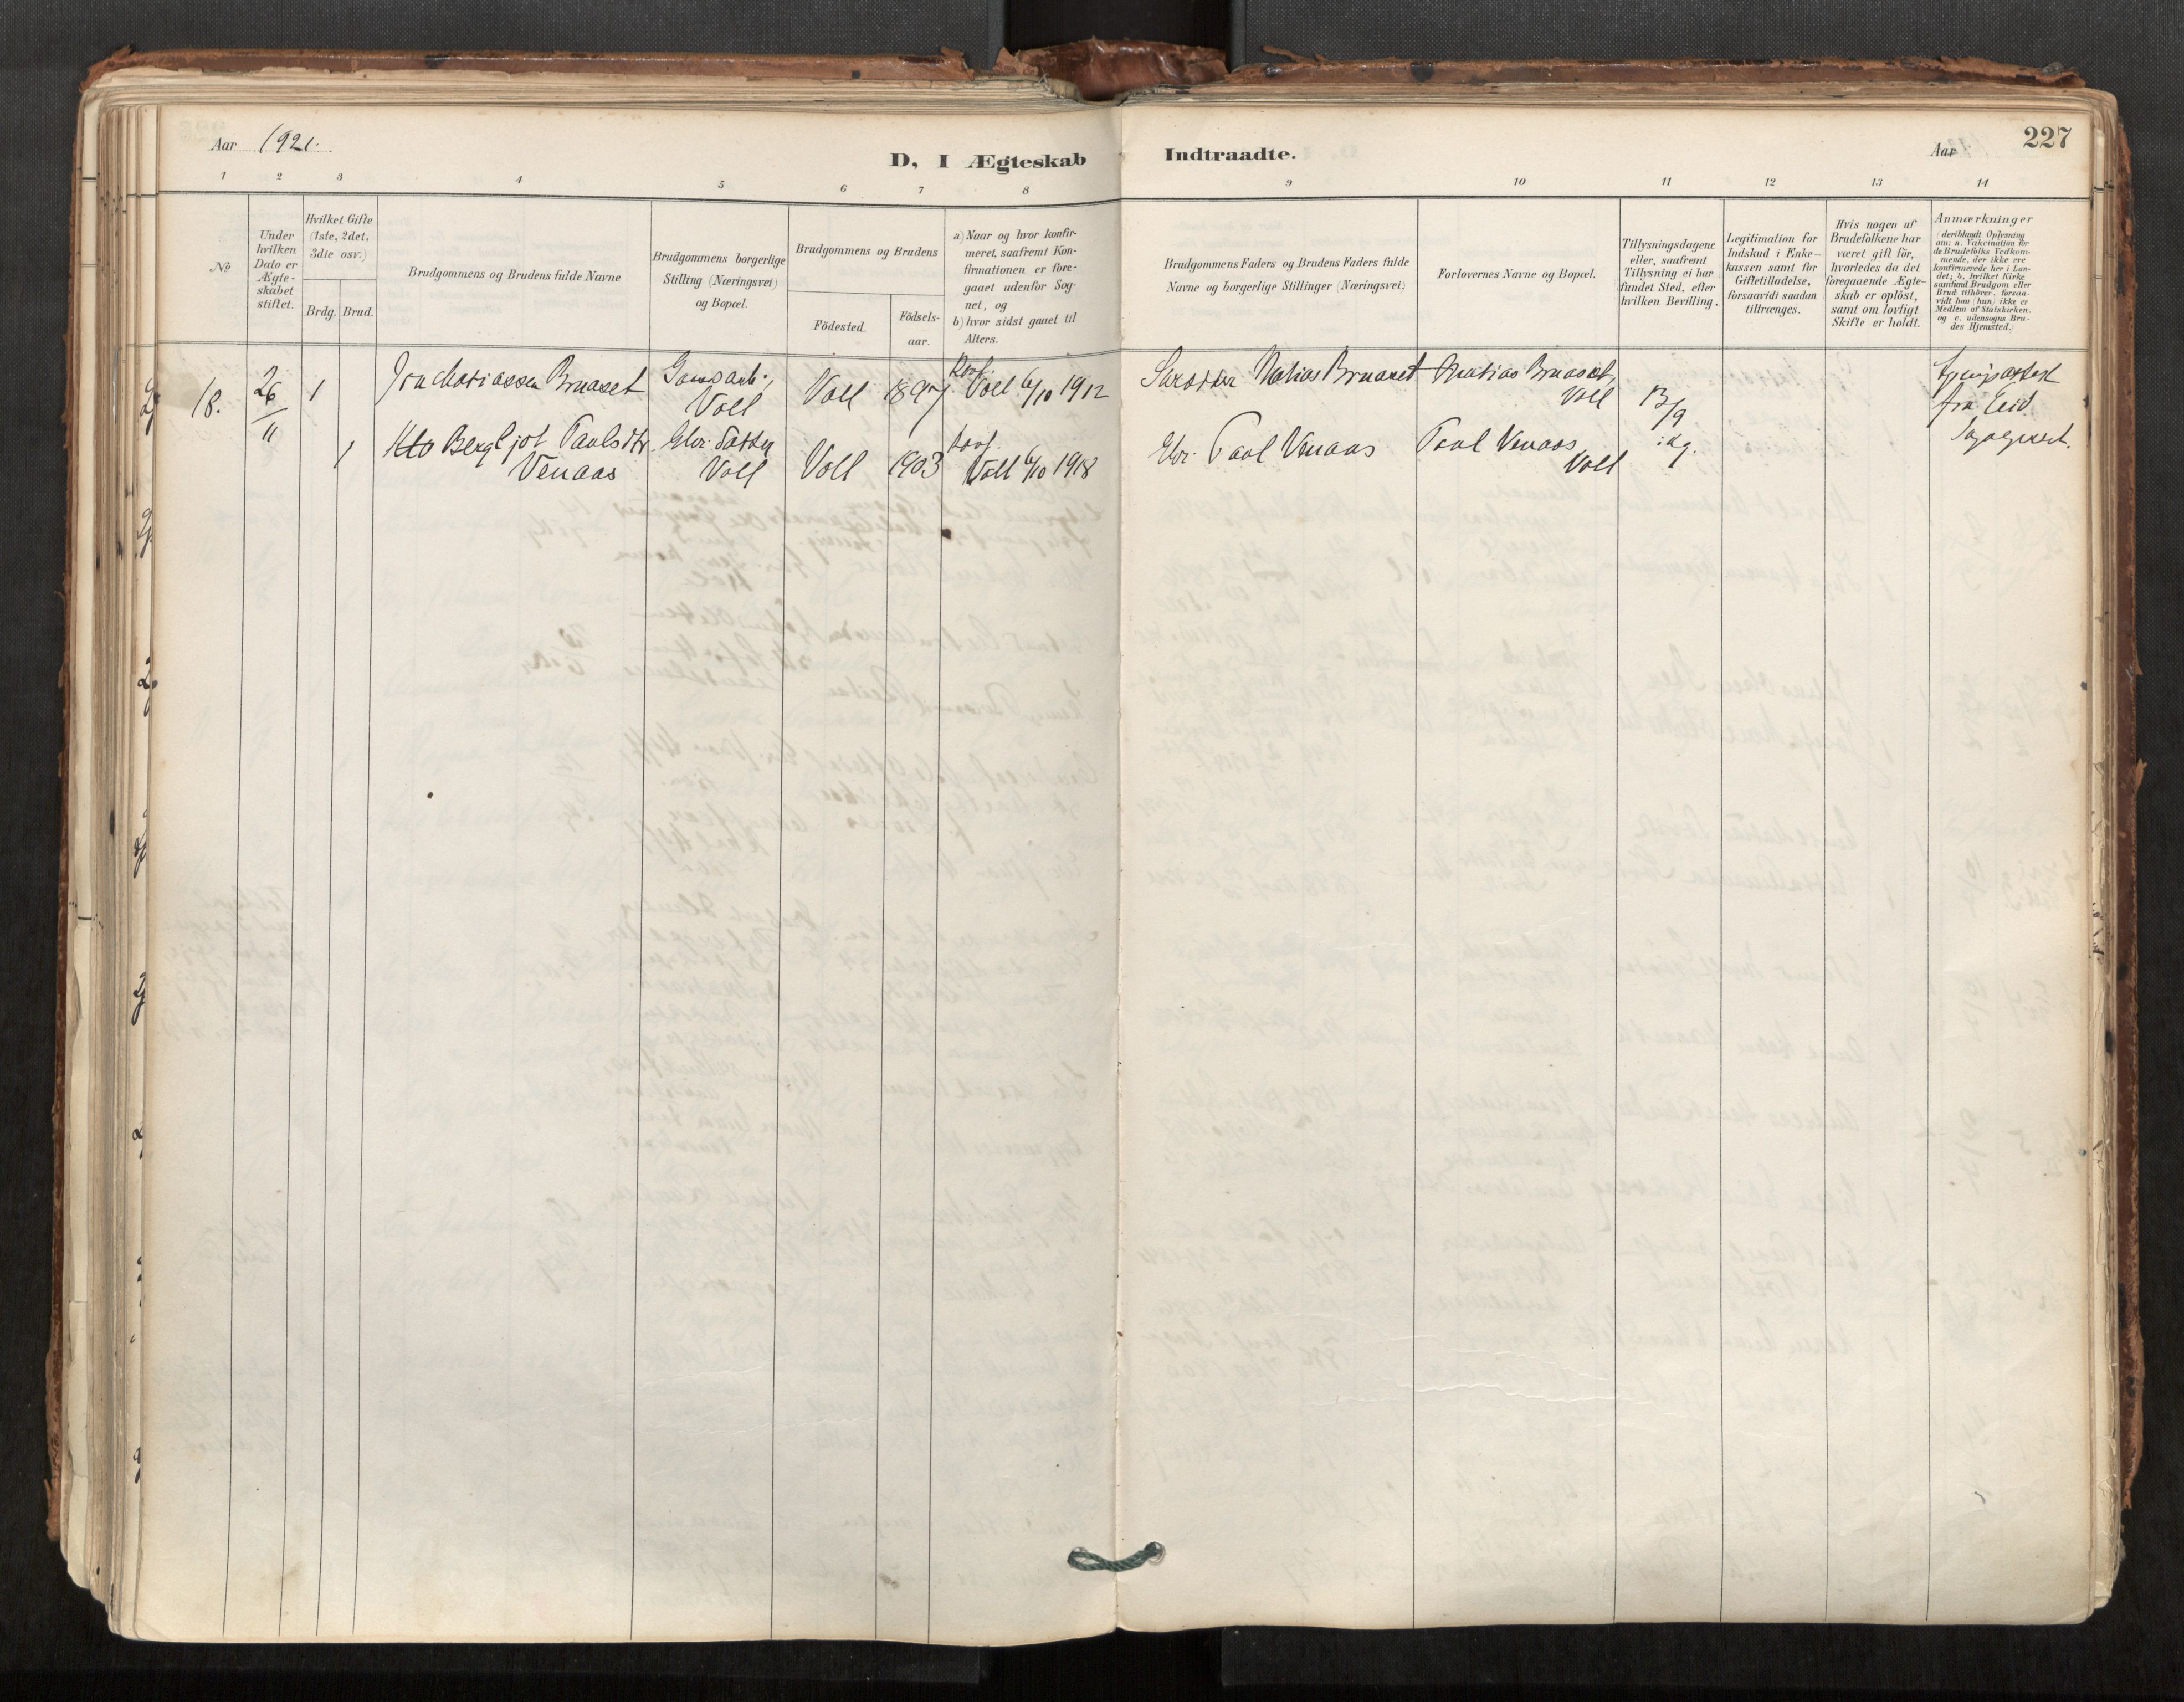 Aar 1921.
D, I Ægteskab Indtraadte.
Aar
227
1 2 3 4 5 6 7 8 9 10 11 12 13 14
No
Under
hvilken
Dato er
Ægte-
skabet
stiftet.
Hvilket Gifte
(1ste, 2det,
3die osv.)
Brdg. Brud.
Brudgommens og Brudens fulde Navne
Brudgommens borgerlige
Stilling (Næringsvei)
og Bopæl.
Brudgommens og Brudens
Födested.
Födsels-
aar.
a) Naar og hvor konfir-
meret, saafremt Kon-
firmationen er fore-
gaaet udenfor Sog-
net, og
b) hvor sidst gaaet til
Alters.
Brudgommens Faders og Brudens Faders fulde
Navne og borgerlige Stillinger (Næringsvei)
Forlovernes Navne og Bopæl.
Tillysningsdagene
eller, saafremt
Tillysning ei har
fundet Sted, efter
hvilken Bevilling.
Legitimation for
Indskud i Enke-
kassen samt for
Giftetilladelse,
forsaavidt saadan
tiltrænges.
Hvis nogen af
Brudefolkene har
været gift för,
hvorledes da det
foregaaende Ægte-
skab er oplöst,
samt om lovligt
Skifte er holdt.
Anmærkninger
(deriblandt Oplysning
om: a. Vakcination for
de Brudefolks Vedkom-
mende, der ikke ere
konfirmerede her i Lan-
det; b. hvilket Kirke
samfund Brudgom eller
Brud tilhörer, forsaa-
vidt han (hun) ikke er
Medlem af Statskirken.
og c. udensogns Bru-
des Hjemsted.)
18. 26/11 1
Bruaset
Voll
Voll 1897
Voll 6/10 1912
Skrædder Matias Bruaset
Matias Bruaset,
Voll
13/9
i kg.
fra Eid
1
Bergljot Paulsdtr.
Venaas
Gbr. datter
Voll
Voll 1903
konf.
Voll 6/10 1918
Gbr. Paul Venaas
Paul Venaas
Voll